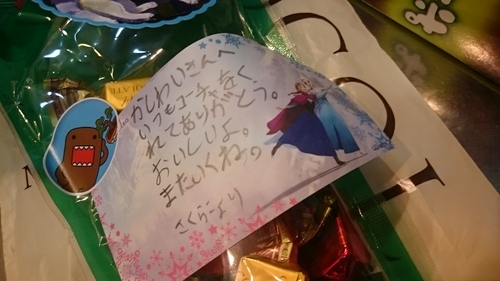 かしわいさんへ
いつもコーチャをく
れてありがとう。
おいしいよ。
またいくね。
さくらこより